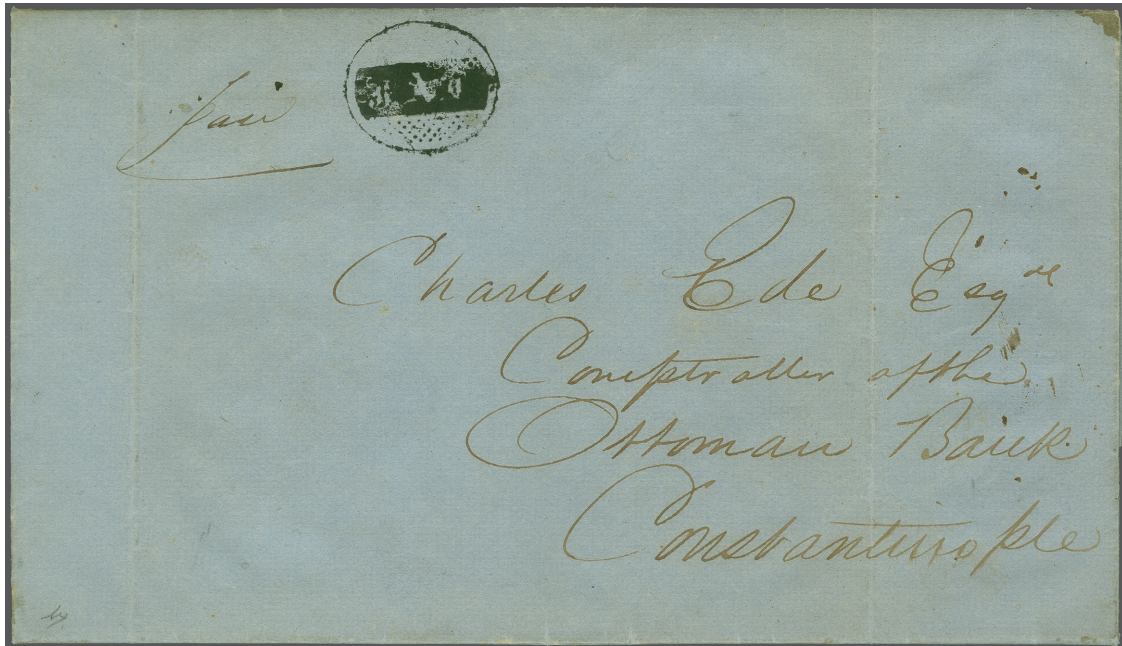 Paid
Charles Ede Esqre
Comptroller of the
Ottoman Bank
Constantinople